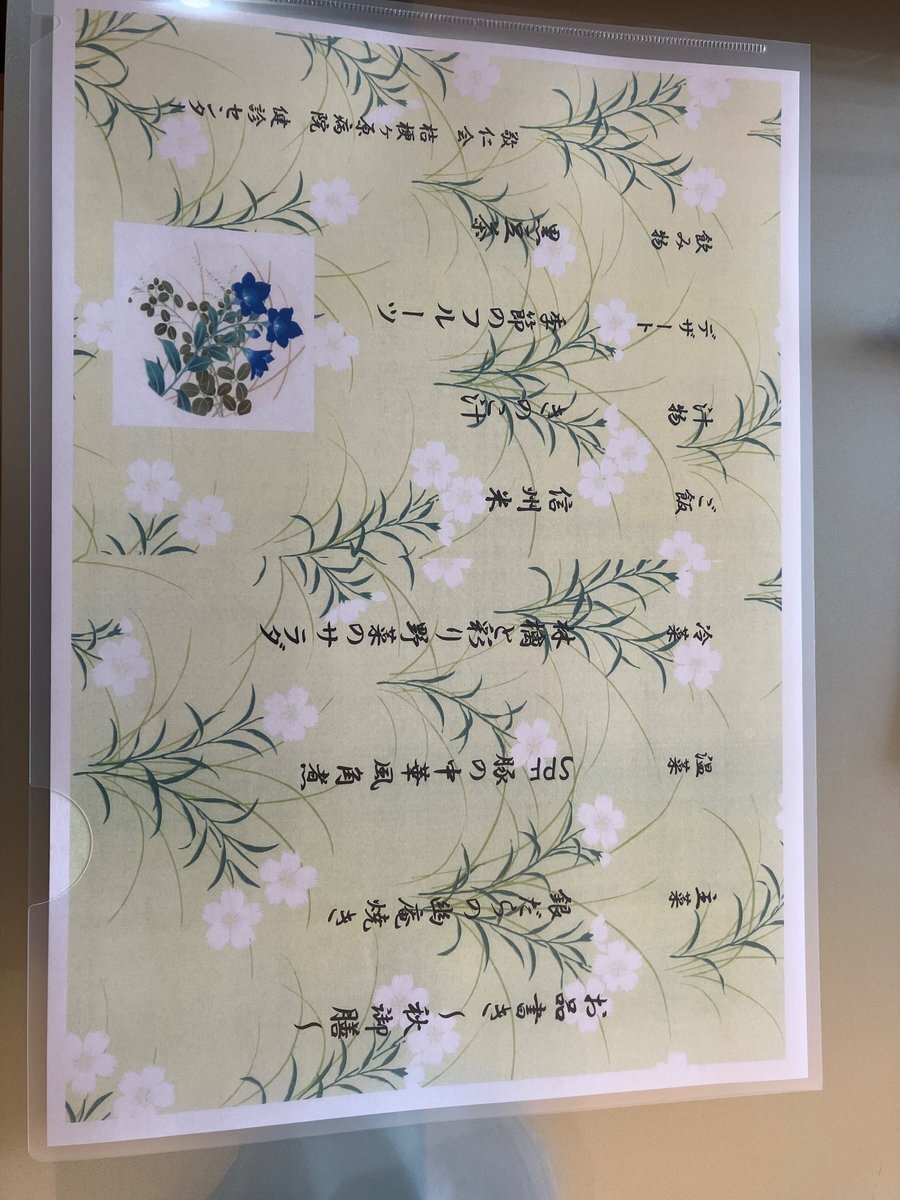 お品書き～秋御膳～
主菜
銀だらの幽庵焼き
温菜
SPF豚の中華風角煮
冷菜
林檎と彩り野菜のサラダ
ご飯
信州米
汁物
きのこ汁
デザート
季節のフルーツ
飲み物
黒豆茶
敬仁会 桔梗ヶ原病院 健診センター